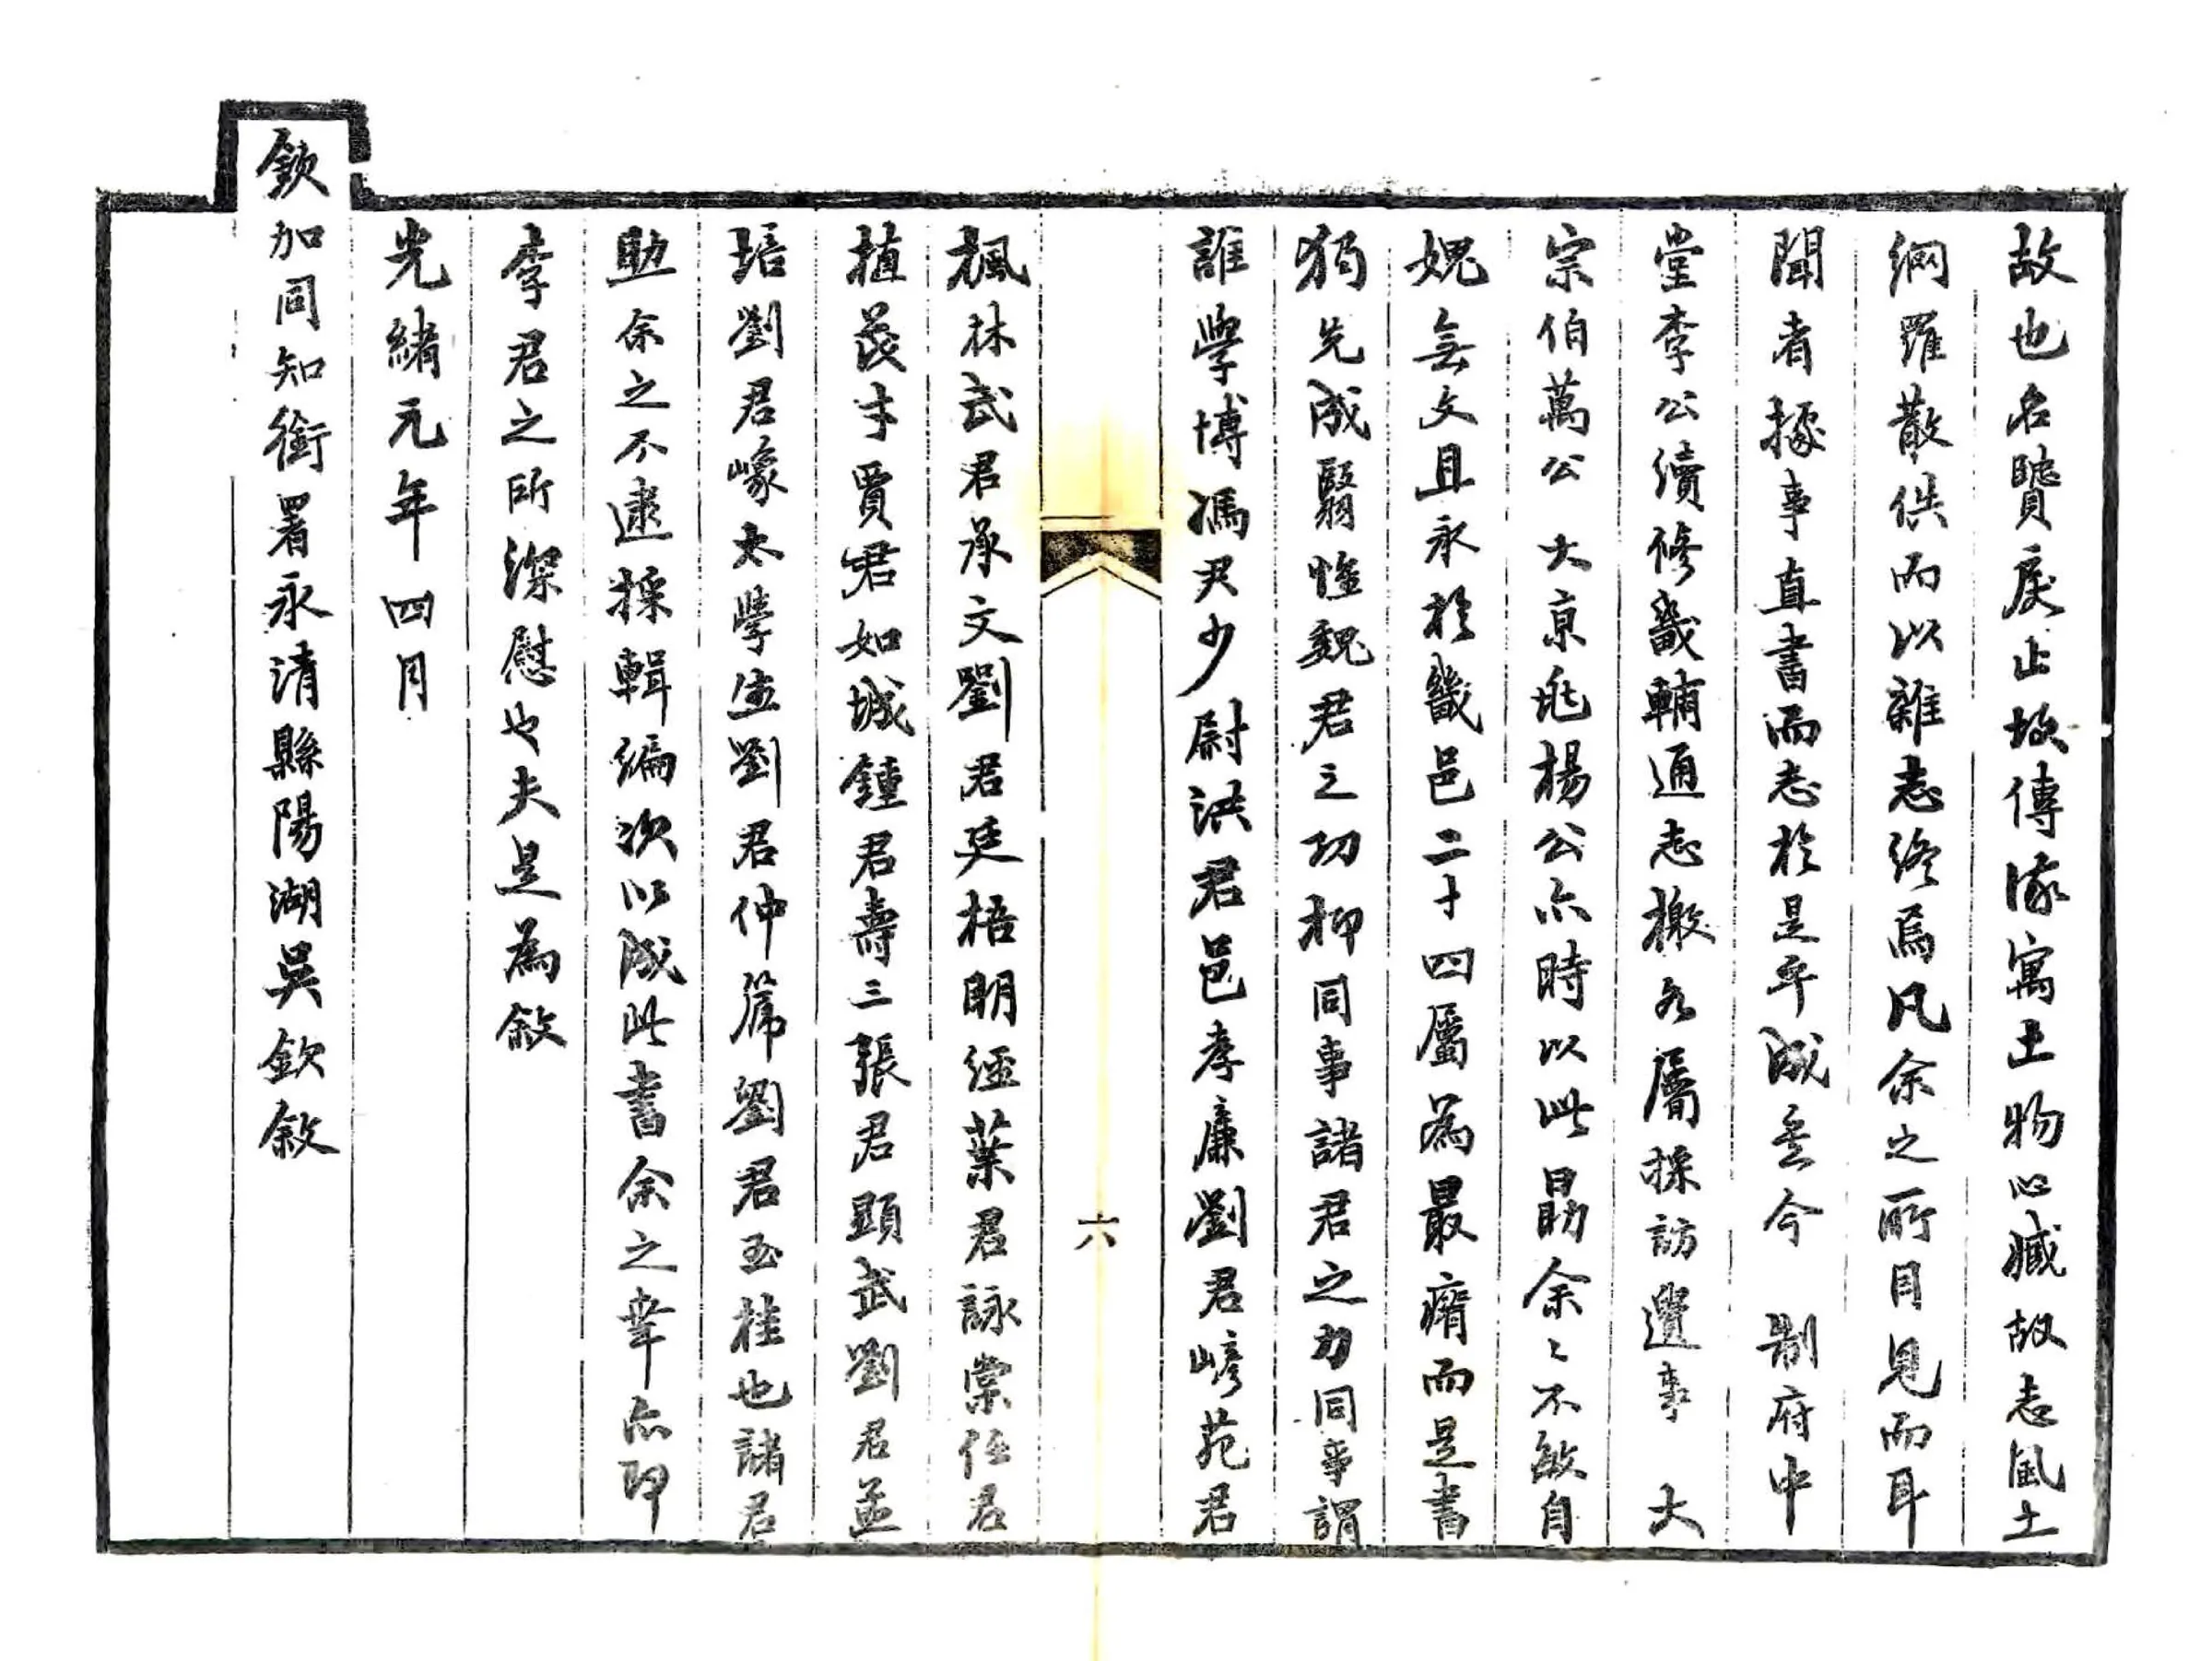 故也名賢戾止故傳流寓土物心臧故志風土
網羅散佚而以雜志終焉凡余之所目見而耳
聞者據事直書而志於是乎成矣今 制府中
堂李公續修畿輔通志檄各屬採訪遺事 大
宗伯萬公 大京兆楊公亦時以此勗余余不敏自
媿無文且永於畿邑二十四屬為最瘠而是書
獨先成繄惟魏君之功抑同事諸君之力同事謂
誰學博馮尹少尉洪君邑孝廉劉君嵴苑君
六
楓林武君承文劉君廷梧明經葉君詠棠任君
植茂才賈君如城鍾君壽三張君顯武劉君並
培劉君㟲太學生劉君仲篪劉君玉桂也諸君
助余之不逮採輯編次以成此書余之幸亦即
李君之所深慰也夫是為敘
光緒元年四月
欽加同知銜署永清縣陽湖吳欽敘